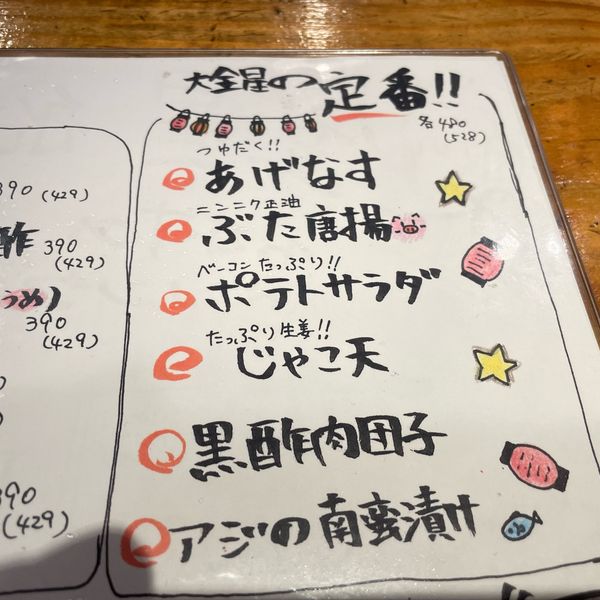 大金星の定番!!
各480
(528)
つゆだく!!
あげなす
ニンニク正油
ぶた唐揚
ベーコンたっぷり!!
ポテトサラダ
たっぷり生姜!!
じゃこ天
黒酢肉団子
アジの南蛮漬け
390 (429)
酢 390
(429)
うめ)
390
(429)
390
(429)